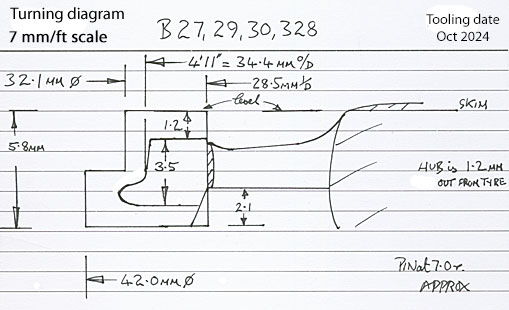 Turning diagram
7 mm/ft scale
B 27, 29, 30, 328
Tooling date
Oct 2024
4'11" = 34.4 MM O/D
32.1 MM Ø
28.5MM I/D
level
SKIM
1.2
5.8MM
3.5
HUB is 1.2 MM
OUT FROM TYRE
2.1
42.0MM Ø
PiNat 7.0r.
APPROX